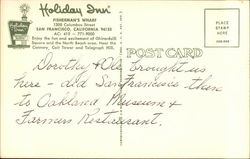 Holiday Inn
FISHERMAN'S WHARF
1300 Columbus Street
SAN FRANCISCO, CALIFORNIA 94133
AC: 415 - 771-9000
Enjoy the fun and excitement of Ghirardelli
Square and the North Beach area. Near the
Cannery, Coit Tower and Telegraph Hill.
PLACE
STAMP
HERE
POST CARD
Dorothy & Ole brought us
here - did San Francisco then
to Oakland, Museum &
Farmers Restaurant.